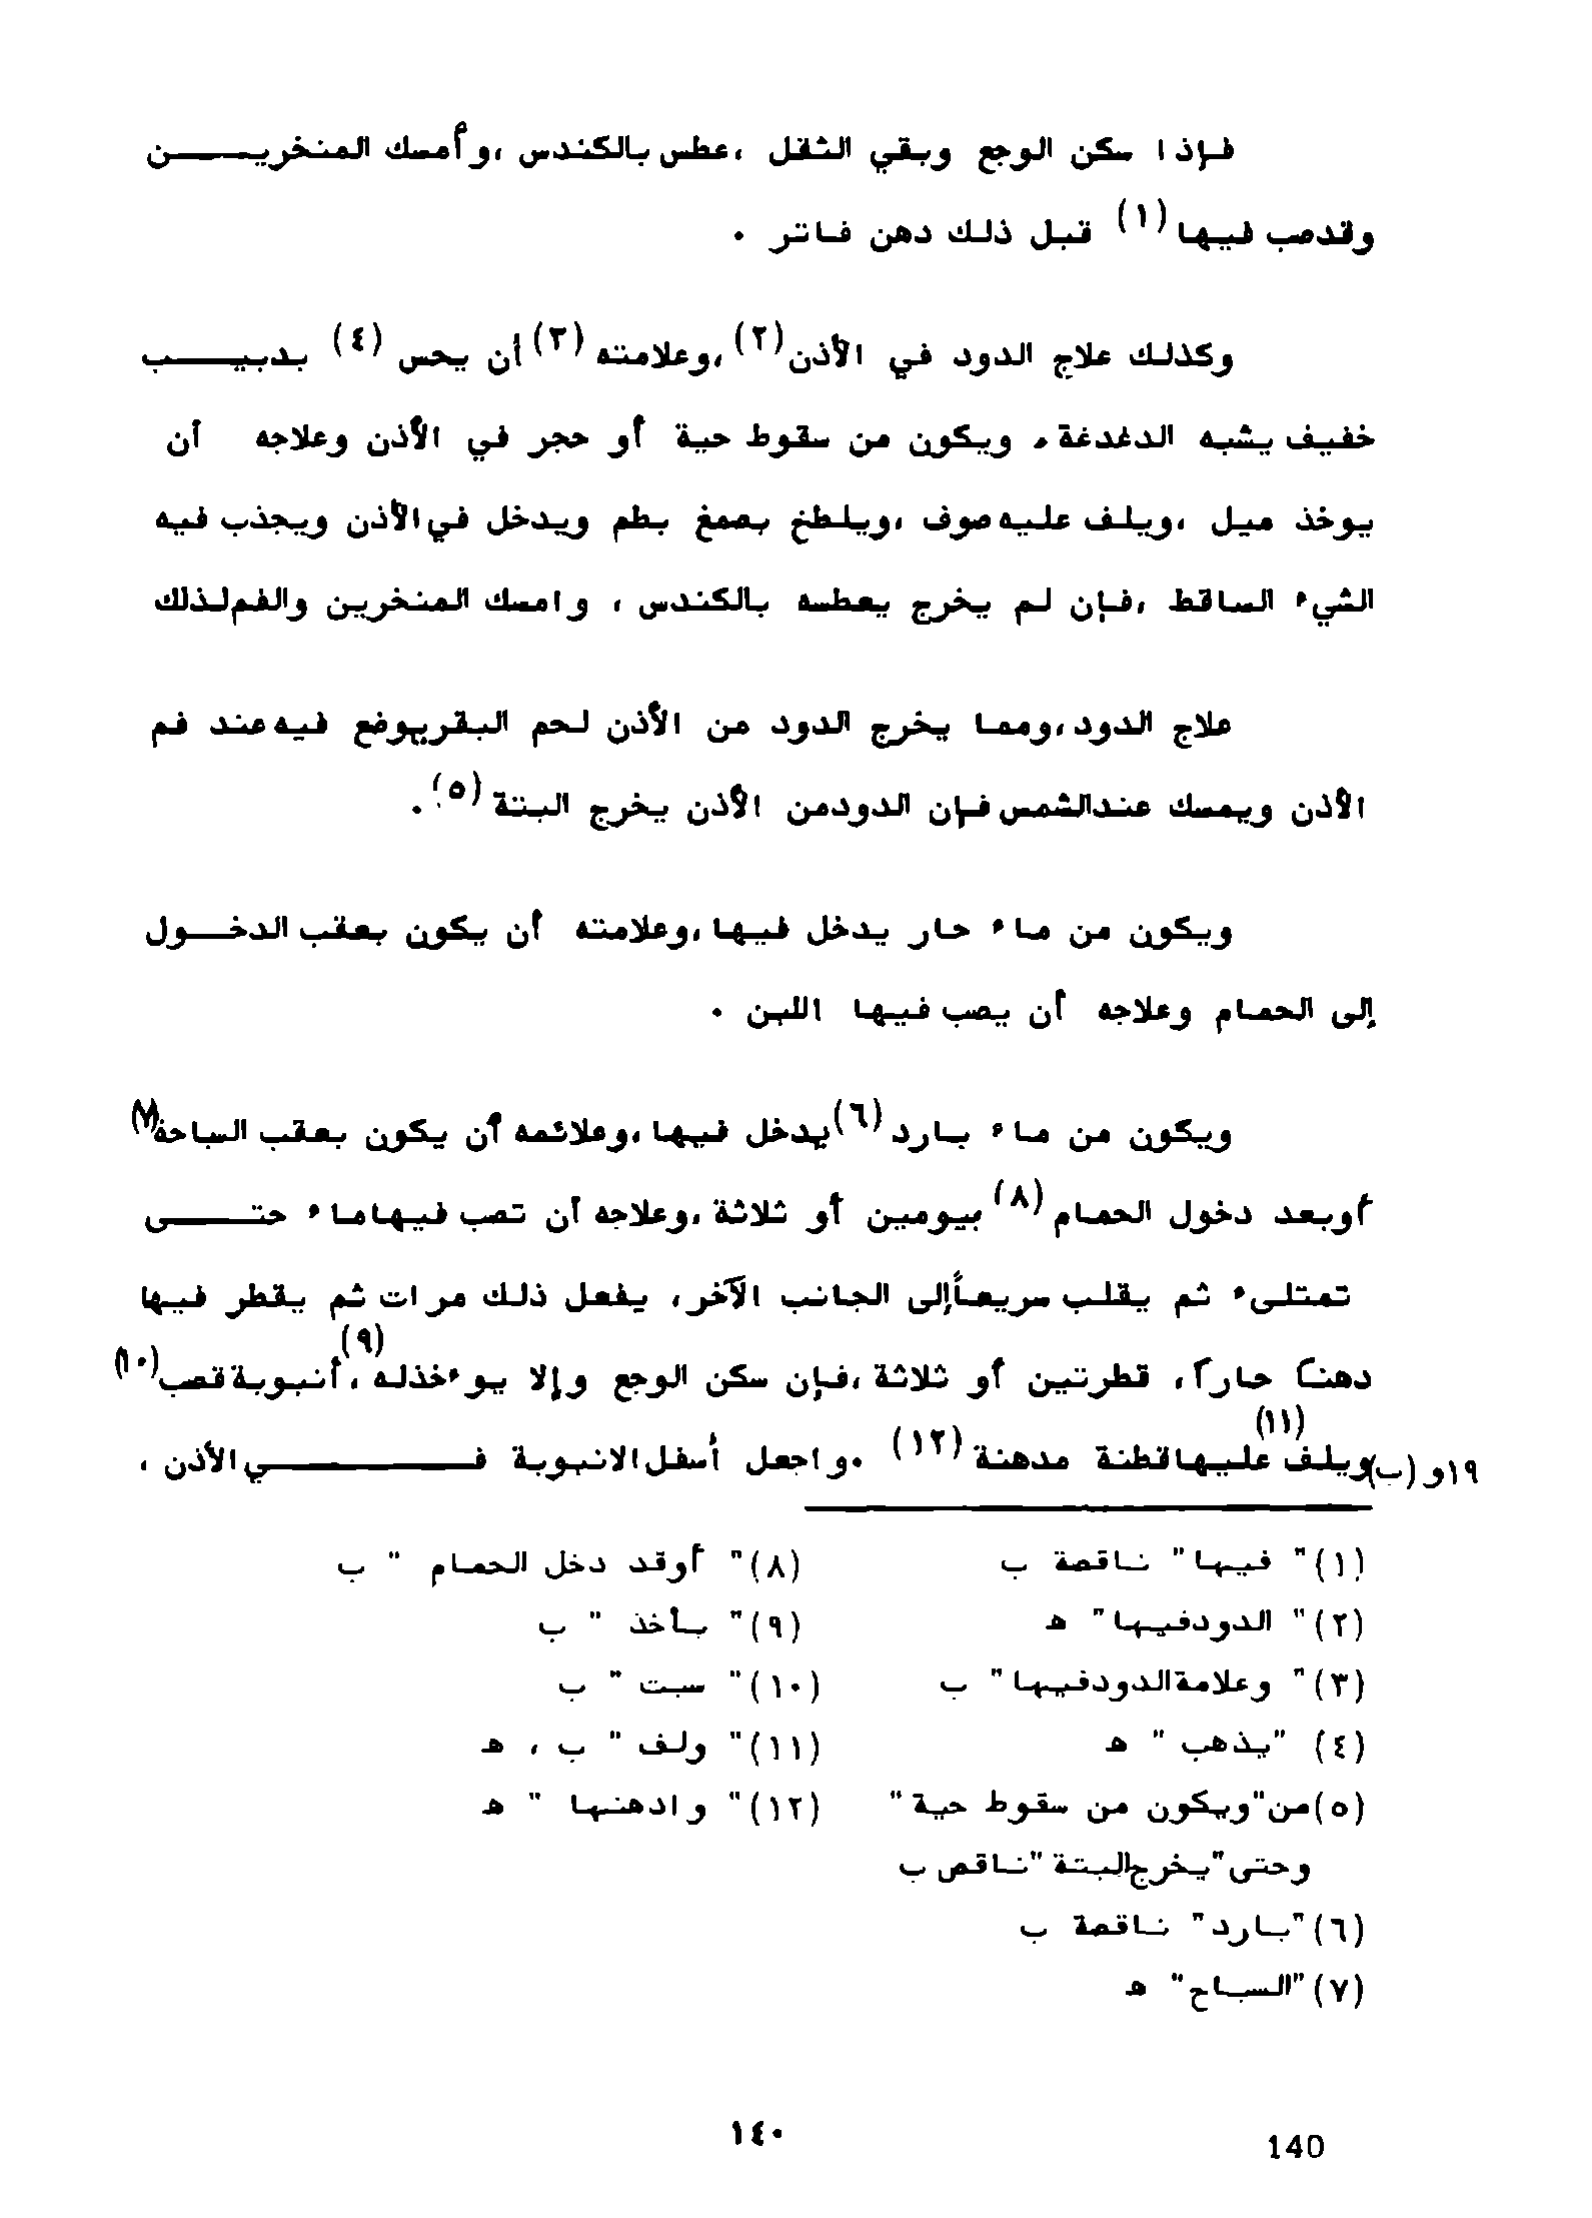 فإذا سكن الوجع وبقي الثقل ،عطس بالكندس ،وأمسك المنخريـــن
وقدصب فيها (١) قبل ذلك دهن فاتر .
وكذلك علاج الدود في الأذن(٢) ،وعلامته (٣) أن يحس (٤) بدبيـــب
خفيف يشبه الدغدغة، ويكون من سقوط حية أو حجر في الأذن وعلاجه أن
يوخذ ميل ،ويلف عليه صوف ،ويلطخ بصمغ بطم ويدخل في الأذن ويجذب فيه
الشيء الساقط ،فإن لم يخرج يعطسه بالكندس ، وامسك المنخرين والفم لذلك
علاج الدود ،ومما يخرج الدود من الأذن لحم البقريوضع فيه عند فم
الأذن ويمسك عندالشمس فإن الدودمن الأذن يخرج البتة (٥) .
ويكون من ماء حار يدخل فيها ،وعلامته أن يكون بعقب الدخــول
إلى الحمام وعلاجه أن يصب فيها اللبن .
ويكون من ماء بارد (٦) يدخل فيها ،وعلائمه أن يكون بعقب الساحة(٧)
أوبعد دخول الحمام (٨) بيومين أو ثلاثة ،وعلاجه أن تصب فيهاماء حتـــى
تمتلىء ثم يقلب سريعاًإلى الجانب الآخر، يفعل ذلك مرات ثم يقطر فيها
دهناً حاراً، قطرتين أو ثلاثة ،فإن سكن الوجع وإلا يوءخذله (٩)،أنبوبة قصب(١٠)
١٩و (ب) ويلف (١١) عليهاقطنة مدهنة (١٢) .واجعل أسفل الانبوبة فـــــي الأذن ،
(١)" فيها" ناقصة ب
(٢)" الدودفيها" ھ
(٣)" وعلامةالدودفيها" ب
(٤) "يذهب " ھ
(٥)من"ويكون من سقوط حية "
وحتى"يخرج البتة "ناقص ب
(٦)"بارد" ناقصة ب
(٧)"السباح" ھ
(٨)" أوقد دخل الحمام " ب
(٩)" بأخذ " ب
(١٠)" سبت " ب
(١١)" ولف " ب ، ھ
(١٢)" وادهنها " ھ
١٤٠
140